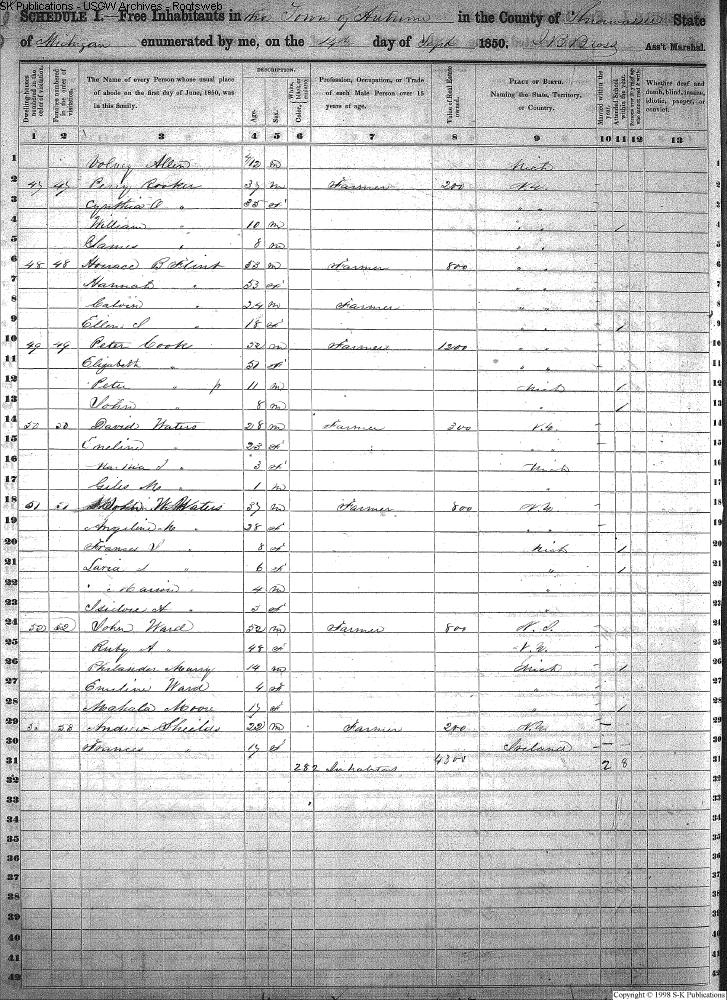 SK Publications - USGW Archives - Rootsweb
SCHEDULE I.—Free Inhabitants in the Town of Antrim in the County of Shiawassee State
of Michigan enumerated by me, on the 14th day of Sept 1850. Ass't Marshal.
Dwelling-houses numbered in the order of visitation. Families numbered in the order of visitation. The Name of every Person whose usual place of abode on the first day of June, 1850, was in this family. DESCRIPTION. Age. Sex. Color, White, black, or mulatto. Profession, Occupation, or Trade of each Male Person over 15 years of age. Value of Real Estate owned. PLACE OF BIRTH. Naming the State, Territory, or Country. Married within the year. Attended School within the year. Whether deaf and dumb, blind, insane, idiotic, pauper, or convict.
1 2 3 4 5 6 7 8 9 10 11 12 13
1 Volney Allen /12 m Mich 1
2 47 47 Perry Rooker 37 m Farmer 200 N.Y. 2
3 Cynthia A " 35 f " " 3
4 William " 10 m " " / 4
5 James " 8 m " " 5
6 48 48 Horace B Flint 53 m Farmer 800 " " 6
7 Hannah " 53 f " " 7
8 Calvin " 24 m Farmer " " 8
9 Ellen S " 18 f " " / 9
10 49 49 Peter Cook 52 m Farmer 1200 " " 10
11 Elizabeth " 51 f " " 11
12 Peter " p 11 m Mich / 12
13 John " 8 m " / 13
14 50 50 David Waters 28 m Farmer 300 N.Y. 14
15 Emeline " 23 f " " 15
16 " 3 f Mich 16
17 Giles M " 1 m " 17
18 51 51 John W Waters 37 m Farmer 800 N.Y. 18
19 Angeline M " 28 f " " 19
20 Frances V " 8 f Mich / 20
21 " 6 f " / 21
22 " Marion " 4 m " 22
23 Isidore A " f " 23
24 52 52 John Ward 52 m Farmer 800 N.J. 24
25 Ruby A " 48 f N.Y. 25
26 Philander Murry 14 m Mich / 26
27 Emeline Ward 4 f " 27
28 Mahala Moore 17 f " / 28
29 53 53 Andrew Sheilds 22 m Farmer 200 N.Y. 29
30 Frances " 17 f Ireland 30
31 282 Inhabitants 4300 2 8 31
32 32
33 33
34 34
35 35
36 36
37 37
38 38
39 39
40 40
41 41
42 42
Copyright © 1998 S-K Publications